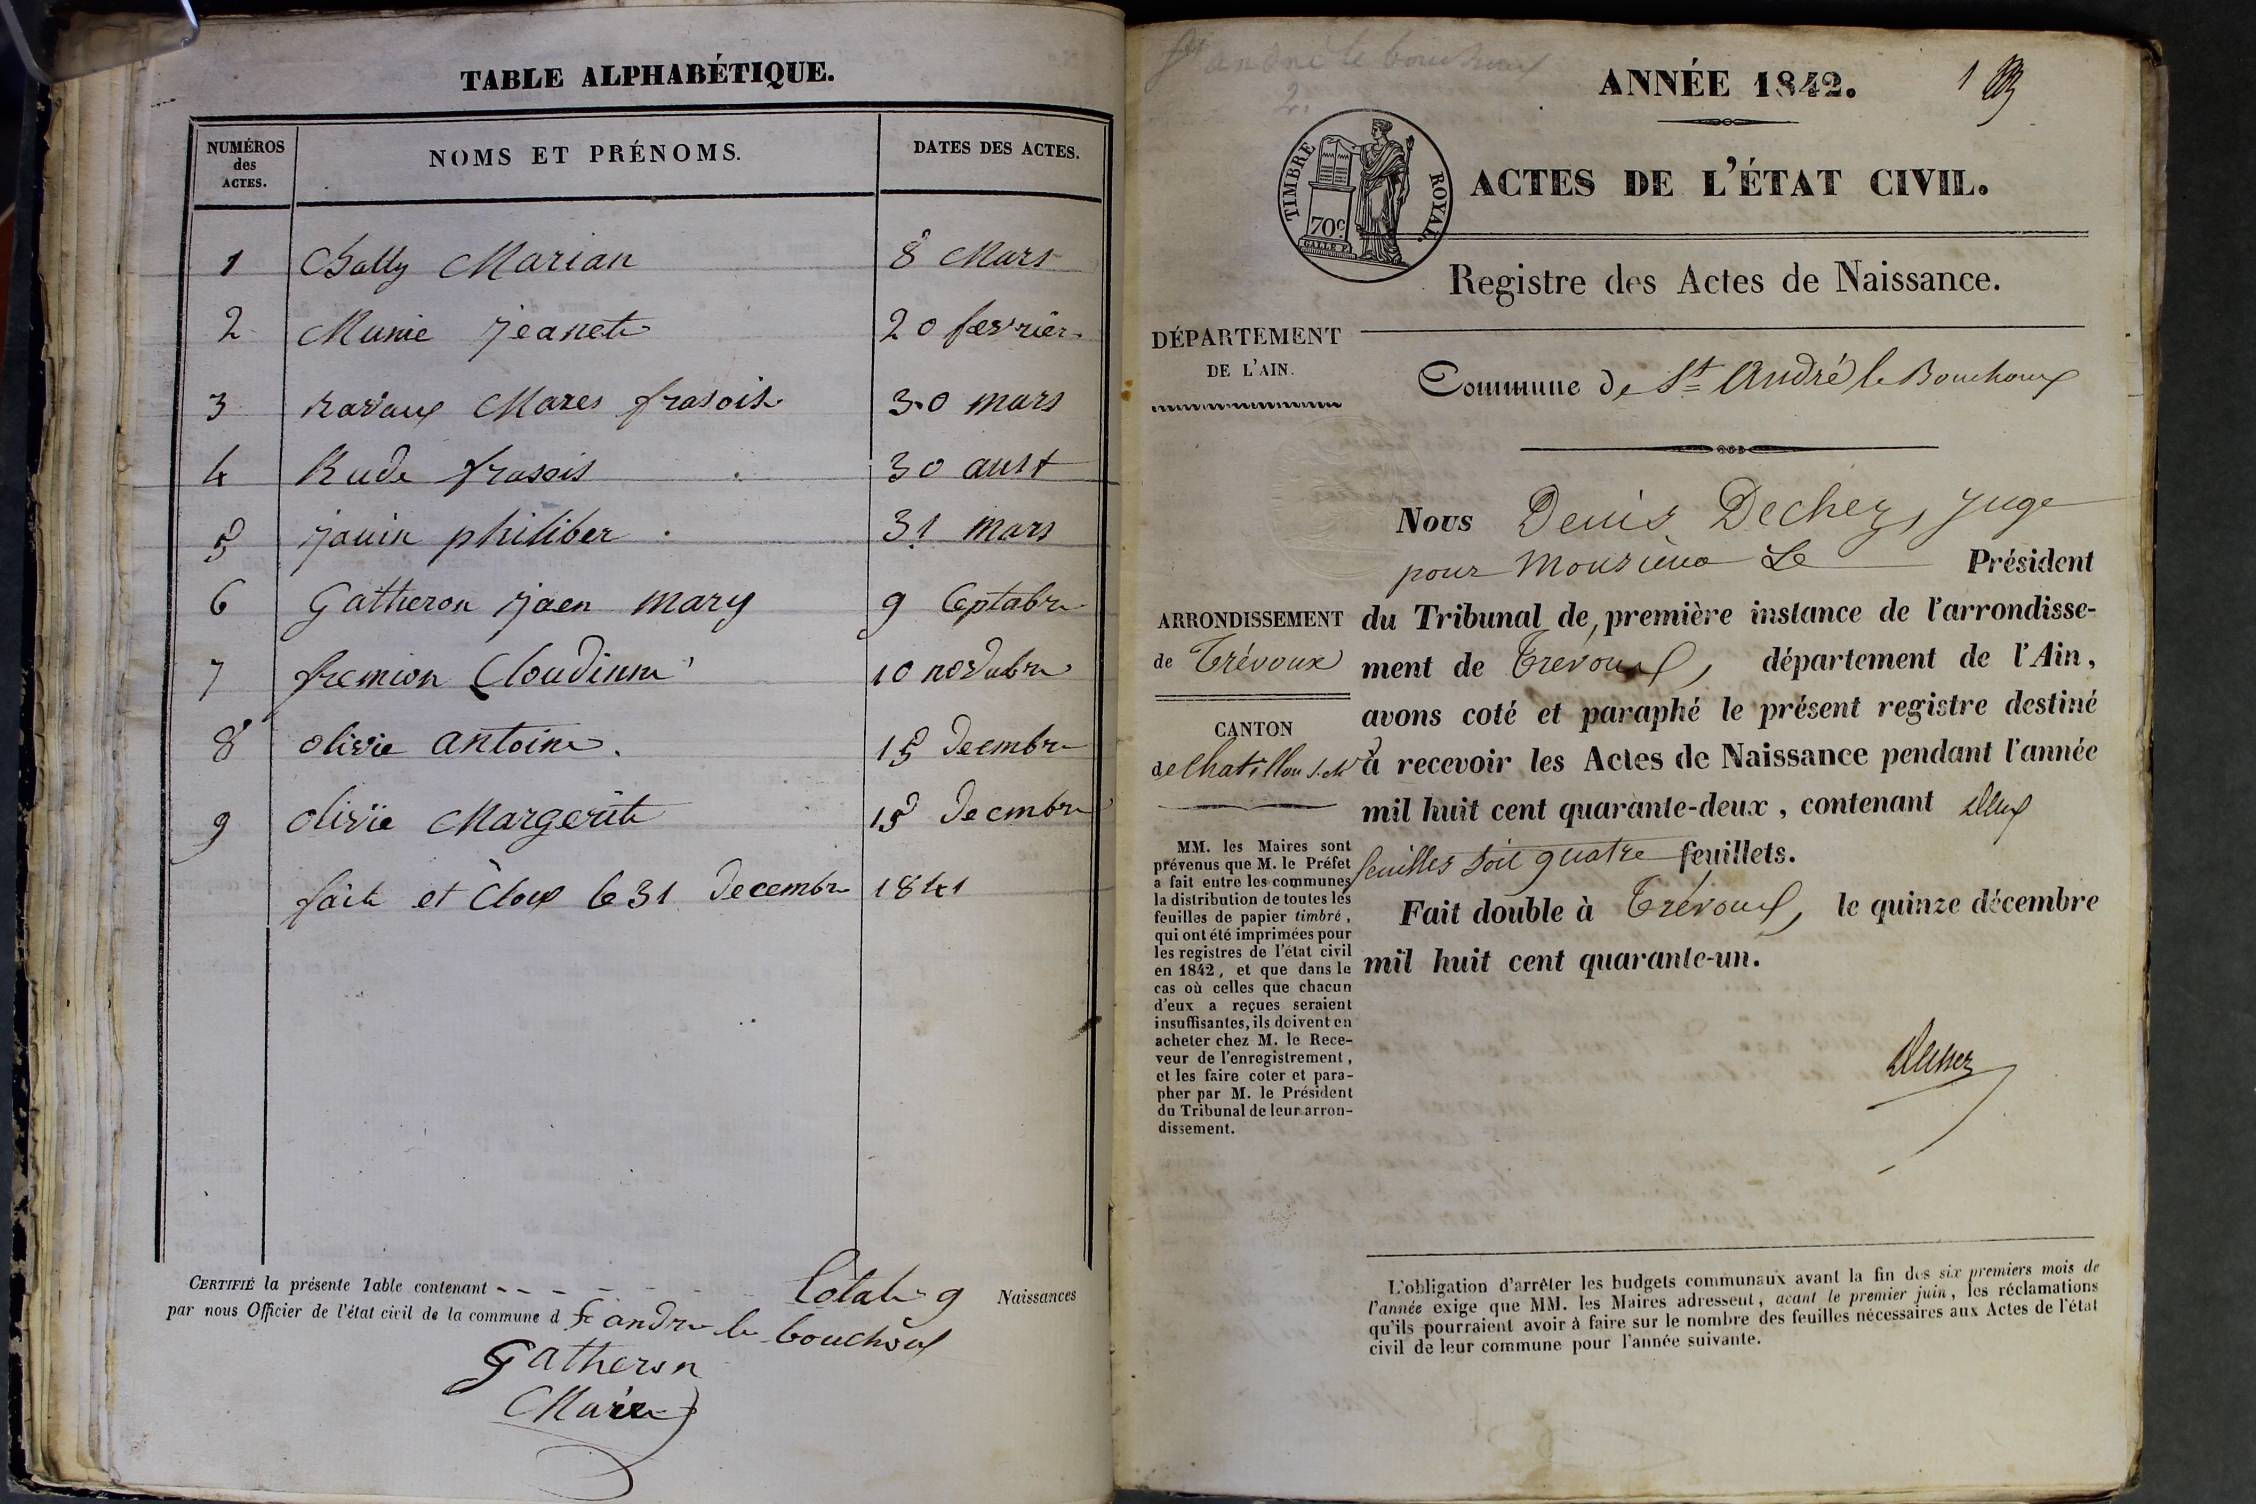 TABLE ALPHABÉTIQUE.
NUMÉROS
des
ACTES.
NOMS ET PRÉNOMS.
DATES DES ACTES.
1 Bally Marian 8 Mars
2 Munie jeanete 20 fevrier
3 ravaux Mares frasoise 30 mars
4 Rude frasois 30 aust
5 jouin philiber 31 mars
6 Gatheron jaen mary 9 Ceptabre
7 fremion Cloudinne 10 novabre
8 olivie antoine. 15 decmbre
9 olivie Margerite 15 decmbre
faite et Cloux le 31 decembre 1841
CERTIFIÉ la présente Table contenant Totale 9 Naissances
par nous Officier de l'état civil de la commune d St andre le bouchoux
Gatheron
Maire
St andré le bouchoux
2.
ANNÉE 1842.
1
TIMBRE ROYAL.
70c.
GALLE F.
ACTES DE L'ÉTAT CIVIL.
Registre des Actes de Naissance.
DÉPARTEMENT
DE L'AIN.
Commune de St André le Bouchoux
Nous Denis Dechez, juge
pour Monsieur Le Président
ARRONDISSEMENT
de Trévoux
CANTON
de Chatillon s. M
du Tribunal de première instance de l'arrondisse-
ment de Trevoux, département de l'Ain,
avons coté et paraphé le présent registre destiné
à recevoir les Actes de Naissance pendant l'année
mil huit cent quarante-deux, contenant deux
feuilles soit quatre feuillets.
Fait double à Trévoux, le quinze décembre
mil huit cent quarante-un.
MM. les Maires sont
prévenus que M. le Préfet
a fait entre les communes
la distribution de toutes les
feuilles de papier timbré,
qui ont été imprimées pour
les registres de l'état civil
en 1842, et que dans le
cas où celles que chacun
d'eux a reçues seraient
insuffisantes, ils doivent en
acheter chez M. le Rece-
veur de l'enregistrement,
et les faire coter et para-
pher par M. le Président
du Tribunal de leur arron-
dissement.
Dechez
L'obligation d'arrêter les budgets communaux avant la fin des six premiers mois de
l'année exige que MM. les Maires adressent, avant le premier juin, les réclamations
qu'ils pourraient avoir à faire sur le nombre des feuilles nécessaires aux Actes de l'état
civil de leur commune pour l'année suivante.